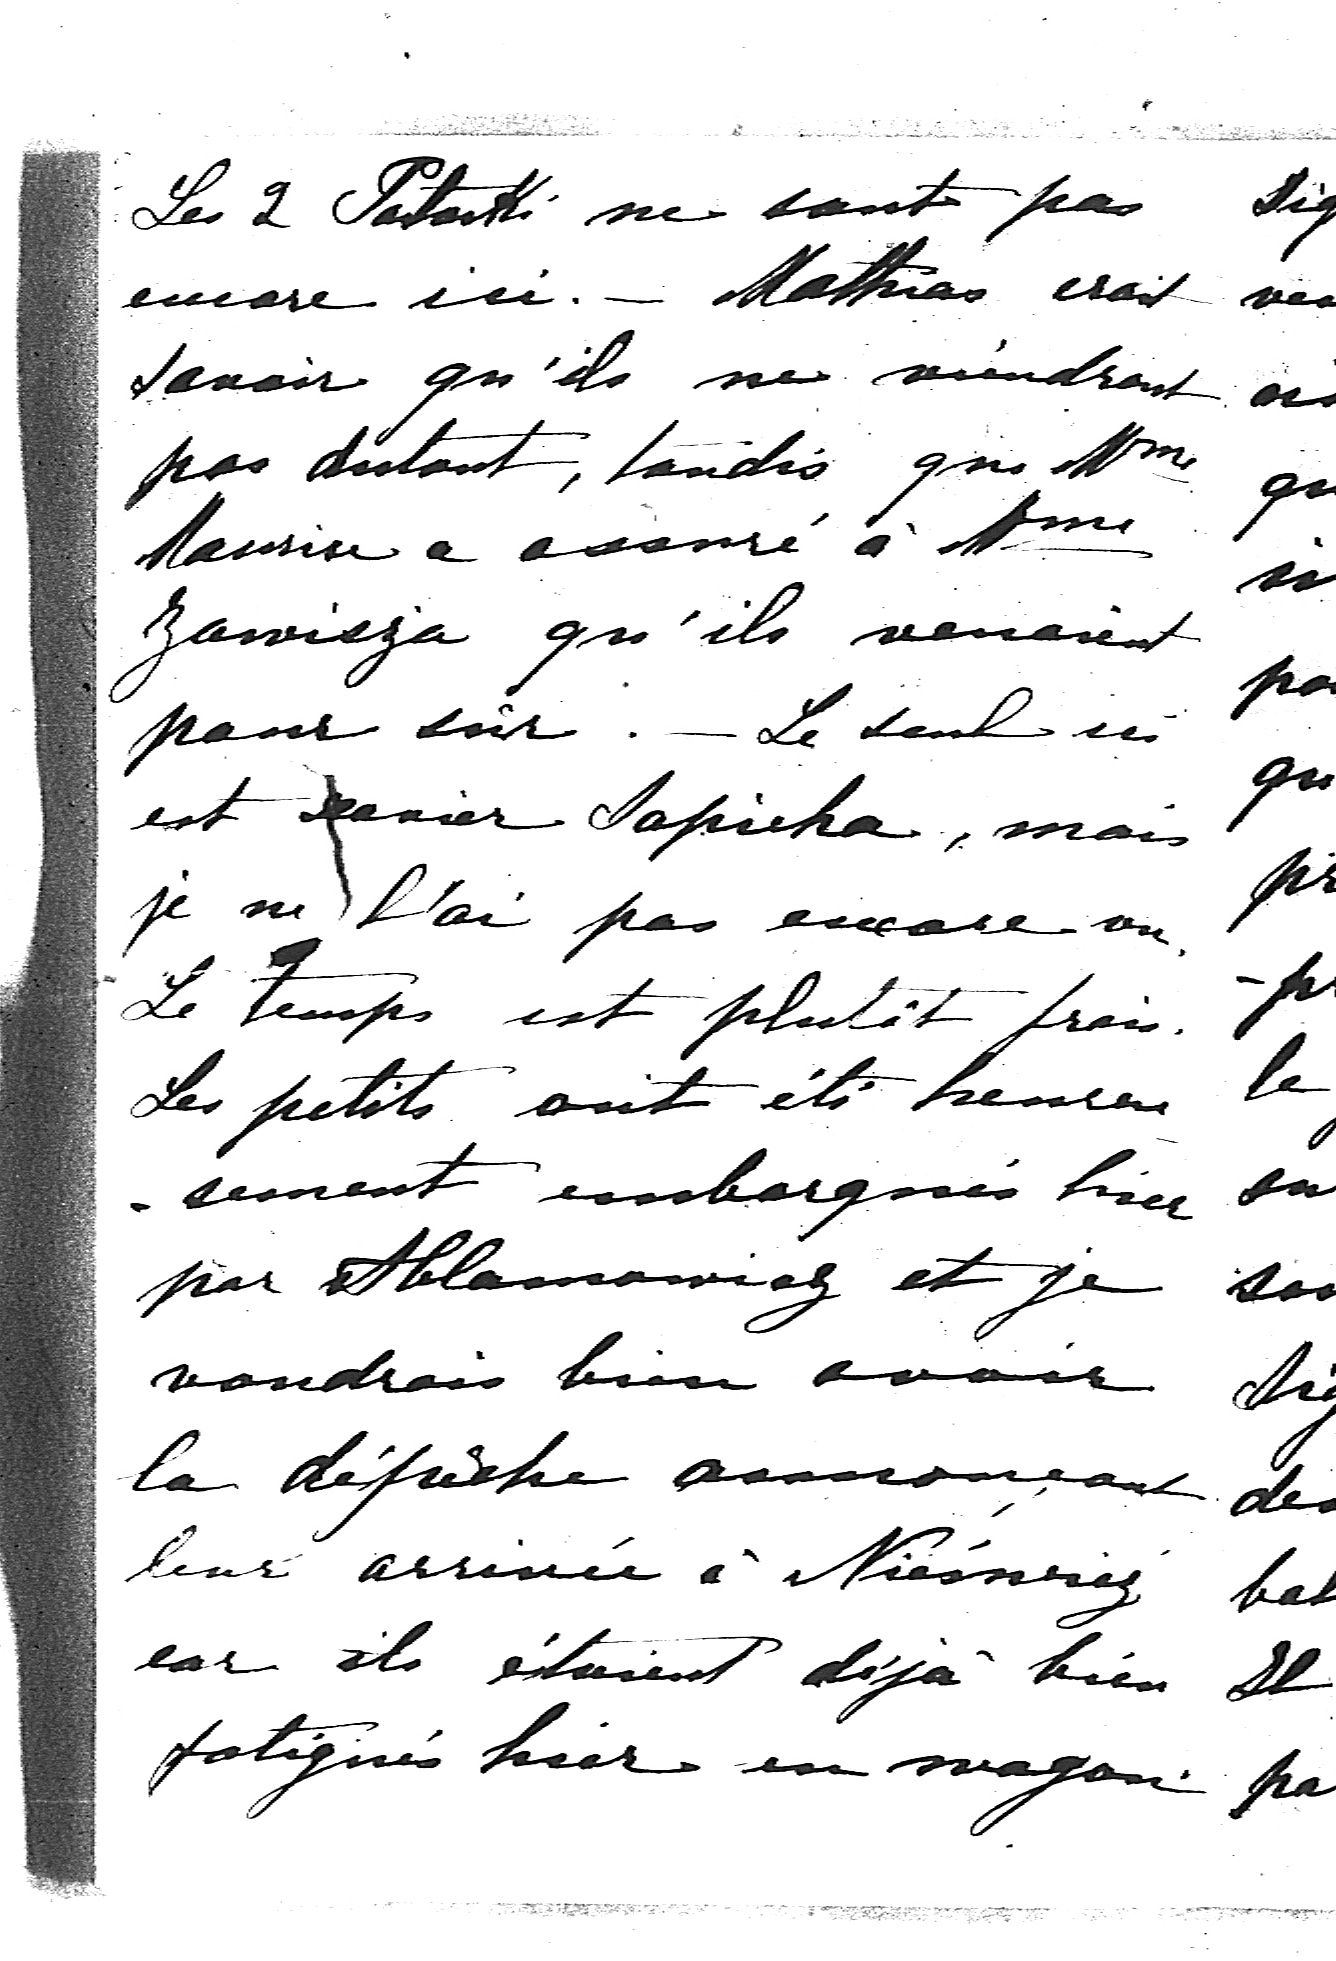 Les 2 Potocki ne sont pas
encore ici. – Mathias croit
savoir qu'ils ne viendront
pas dutout, tandis que Mme
Maurice a assuré à Mme
Zawisza qu'ils venaient
pour sûr. – Le seul ici
est Xavier Sapieha, mais
je ne l'ai pas encore vu.
Le temps est plutôt frais.
Les petits ont été heureu
-sement embarqués hier
par Ablamowicz et je
voudrais bien avoir
la dépêche annonçant
leur arrivée à Nieśwież
car ils étaient déjà bien
fatigués hier en wagon.
qu
qu
le
Il
pa